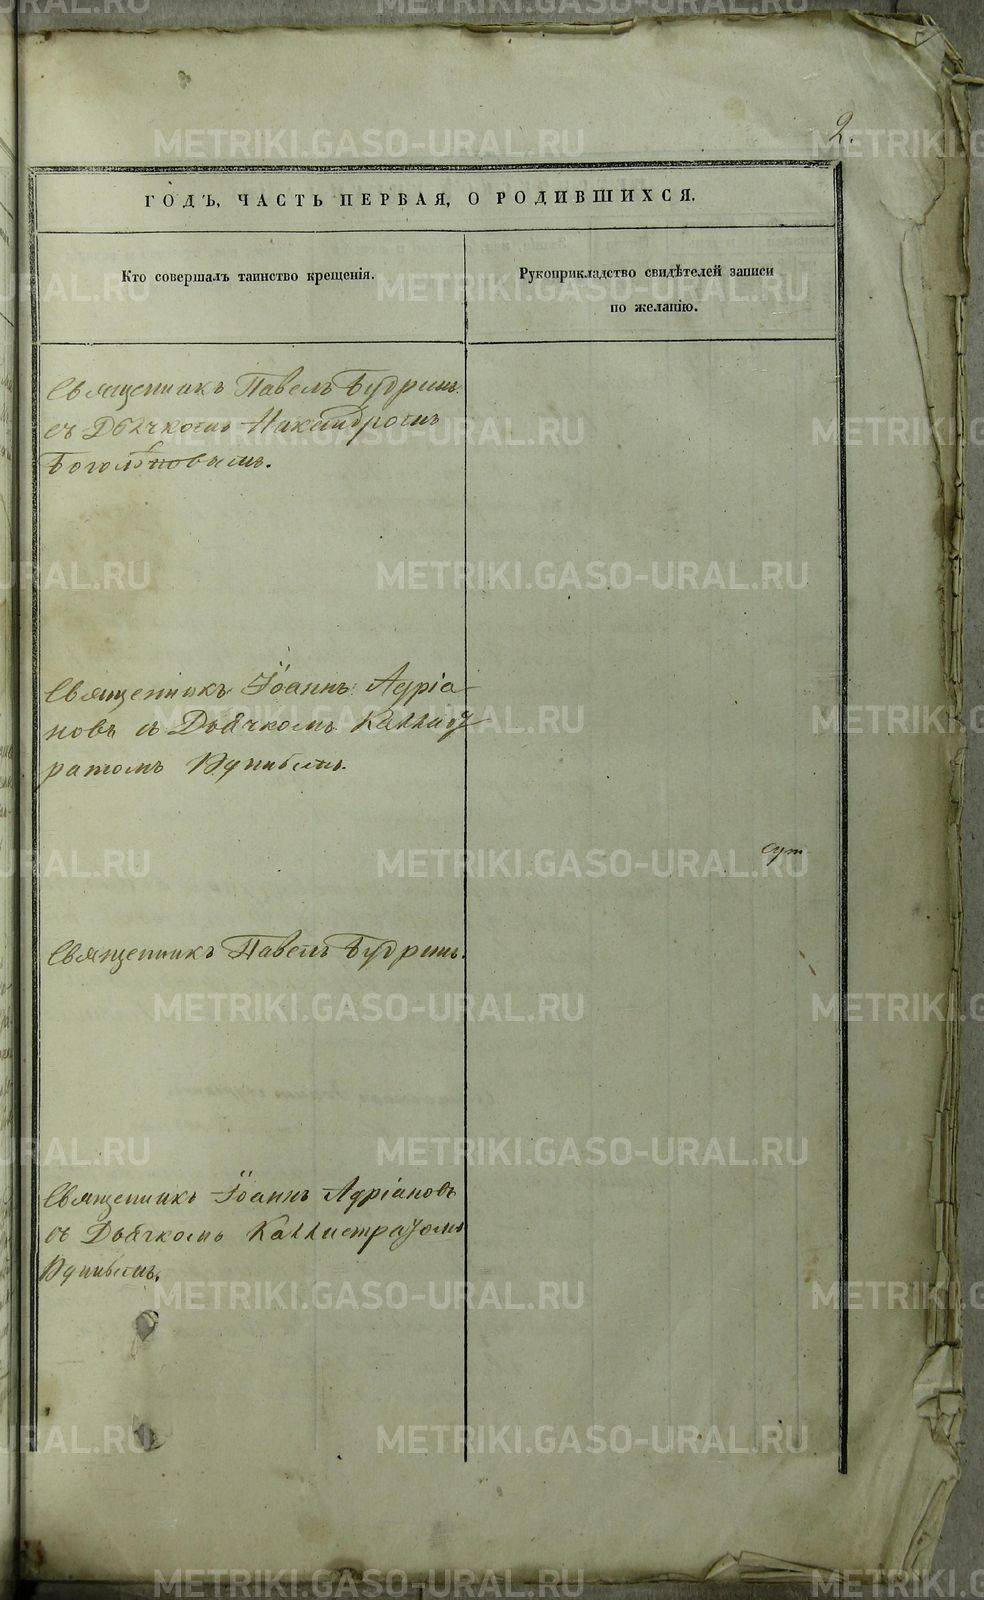 2.
ГОДЪ, ЧАСТЬ ПЕРВАЯ, О РОДИВШИХСЯ.
Кто совершалъ таинство крещенія.
Рукоприкладство свидѣтелей записи
по желанію.
Священникъ Павелъ Будринъ
съ Дьячкомъ Никандромъ
Священникъ Іоаннъ Адріа-
новъ съ Дьячкомъ Каллист
ратомъ
Священникъ Павелъ Будринъ.
Священникъ Іоаннъ Адріановъ
съ Дьячкомъ Каллистратомъ
METRIKI.GASO-URAL.RU